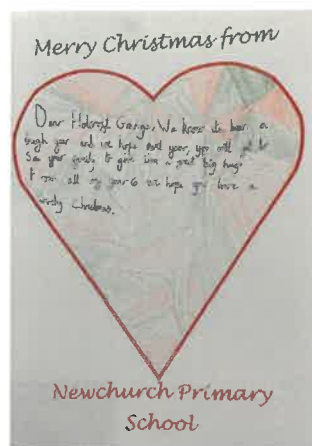 Merry Christmas from
Dear Holcroft Grange, We know its been a
tough year and we hope next year, you will get to
see your family to give them a great big hug!
From all of year 6 we hope you have a
lovely Christmas.
Newchurch Primary
School